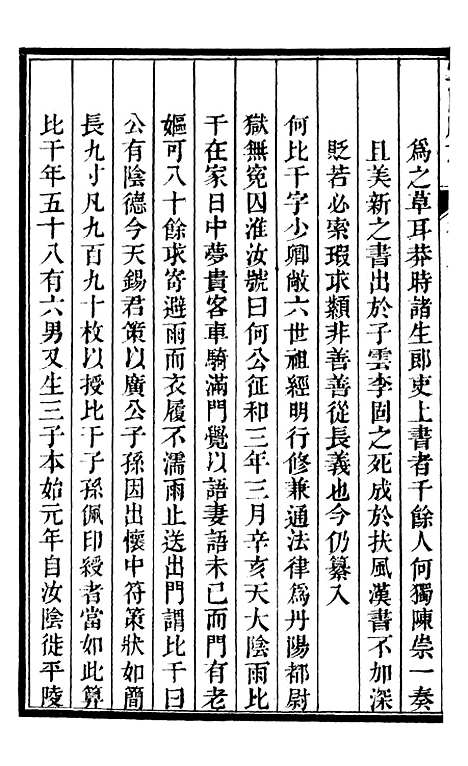 爲之草耳莽時諸生郎吏上書者千餘人何獨陳崇一奏
且美新之書出於子雲李固之死成於扶風漢書不加深
貶若必索瑕求纇非善善從長義也今仍纂入
何比干字少卿敞六世祖經明行修兼通法律爲丹陽都尉
獄無寃囚淮汝號曰何公征和三年三月辛亥天大陰雨比
干在家日中夢貴客車騎滿門覺以語妻語未已而門有老
嫗可八十餘求寄避雨而衣履不濡雨止送出門謂比干曰
公有陰德今天錫君策以廣公子孫因出懷中符策狀如簡
長九寸凡九百九十枚以授比干子孫佩印綬者當如此算
比干年五十八有六男又生三子本始元年自汝陰徙平陵